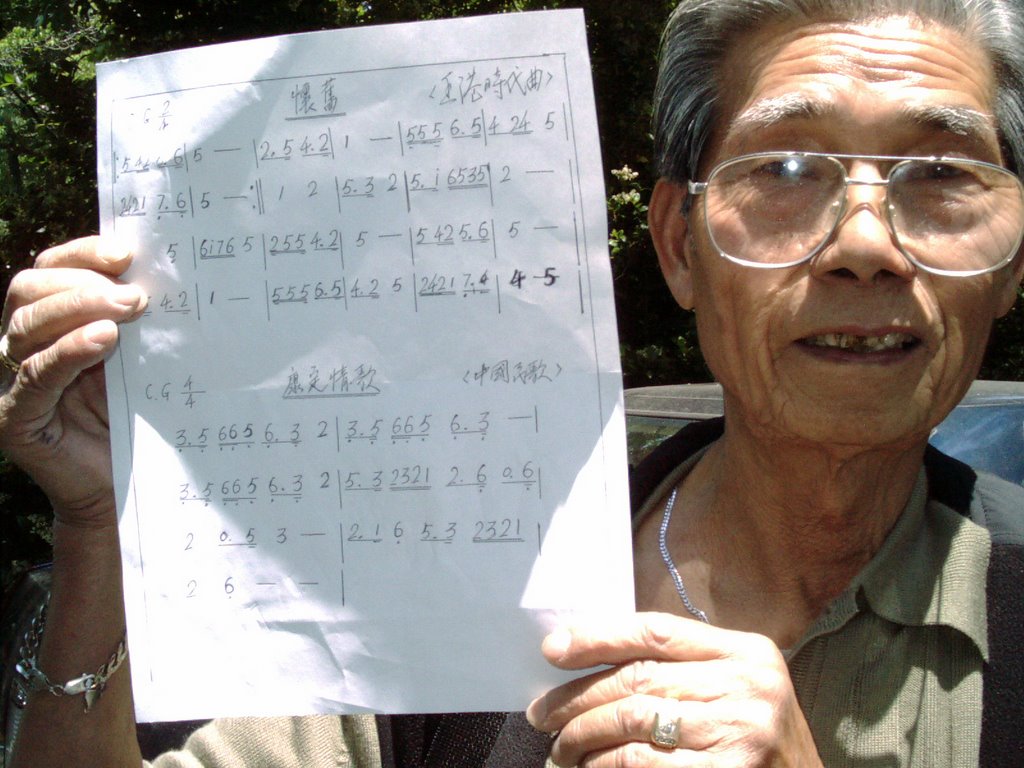 G 2/4 懷舊 〈王港時代曲〉
5 — | 2.5 4.2 | 1 — | 555 6.5 | 4 24 5 |
2421 7.6 | 5 — :|| 1 2 | 5.3 2 | 5. i 6535 | 2 — |
5 | 6i76 5 | 255 4.2 | 5 — | 5 42 5.6 | 5 — |
4.2 | 1 — | 555 6.5 | 4.2 5 | 2421 7.4 | 4 - 5 |
C.G 4/4 康定情歌 〈中國民歌〉
3.5 665 6.3 2 | 3.5 665 6.3 — |
3.5 665 6.3 2 | 5.3 2321 2.6 0.6 |
2 0.5 3 — | 2.1 6 5.3 2321 |
2 6 — — |